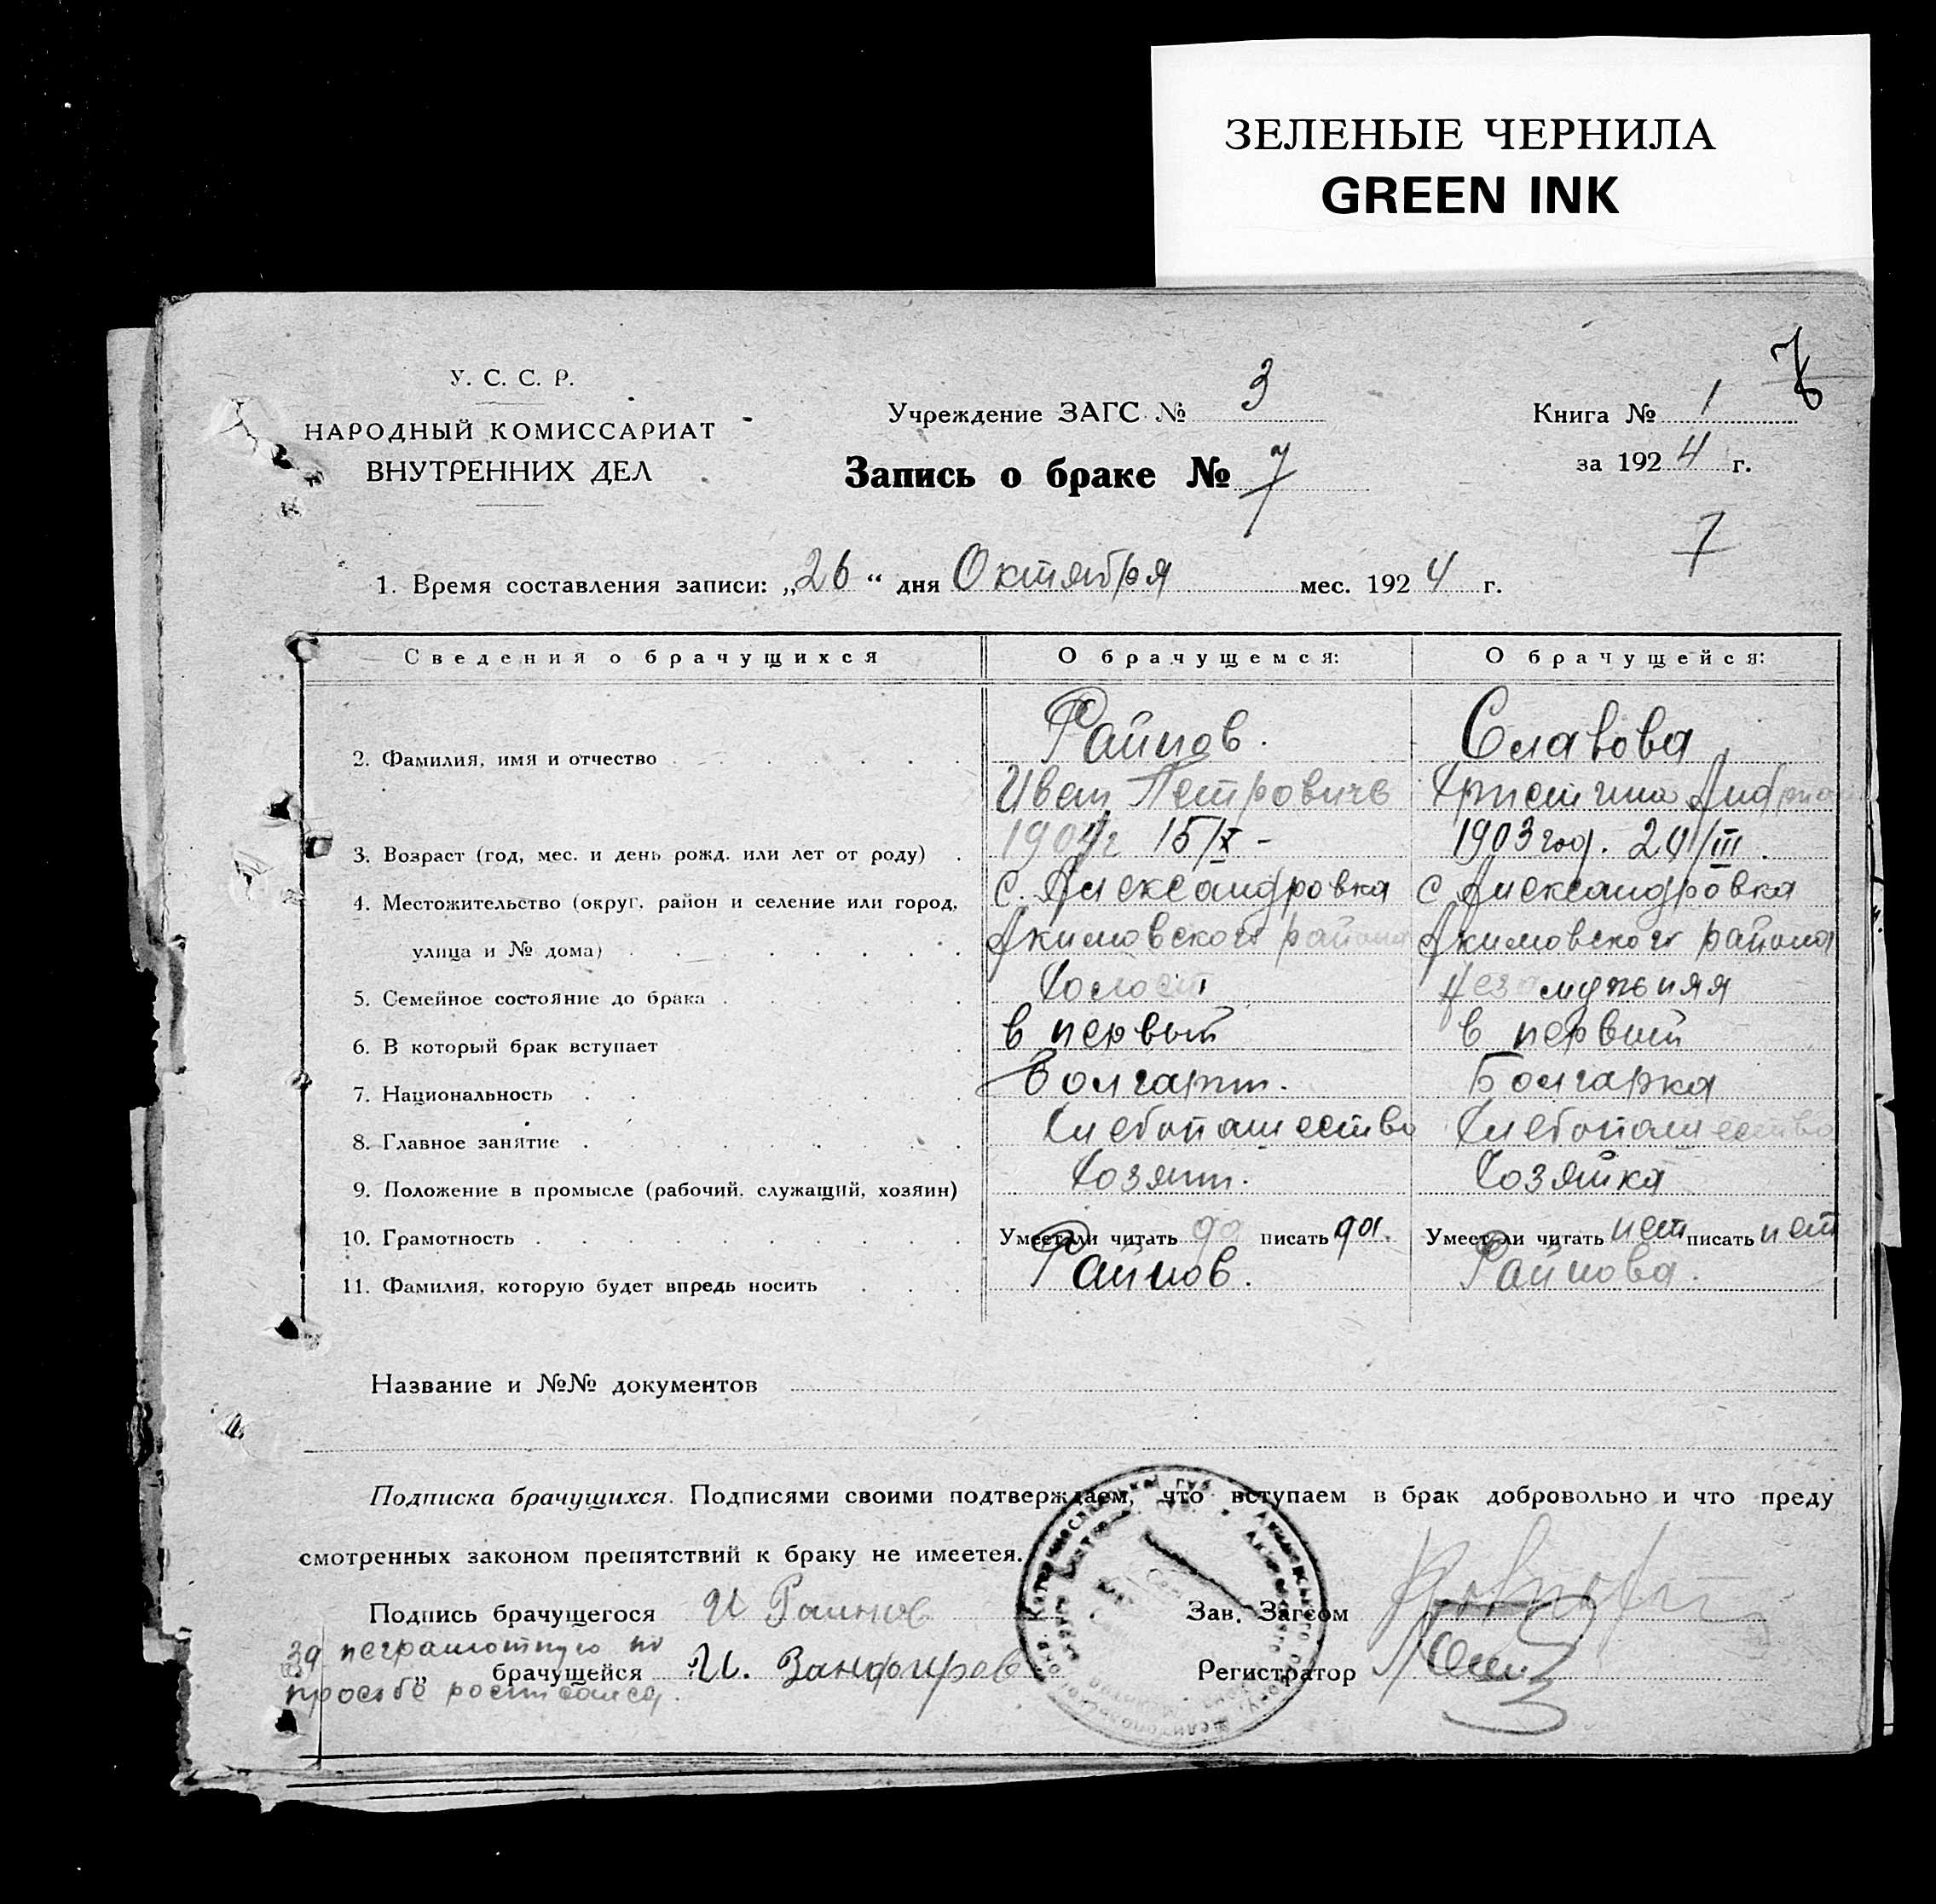 ЗЕЛЕНЫЕ ЧЕРНИЛА
GREEN INK
У. С. С. Р.
НАРОДНЫЙ КОМИССАРИАТ
ВНУТРЕННИХ ДЕЛ
Учреждение ЗАГС № 3
Запись о браке № 7
Книга № 1
за 1924 г.
7
1. Время составления записи: „26“ дня Октября мес. 1924 г.
Сведения о брачущихся О брачущемся: О брачущейся:
Райнов. Славова
2. Фамилия, имя и отчество
Иван Петрович Христина
3. Возраст (год, мес. и день рожд. или лет от роду) 1904г 15/X - 1903 год. 20/III.
4. Местожительство (округ, район и селение или город, с. Александровка с Александровка
улица и № дома) Акимовского района Акимовского района
5. Семейное состояние до брака Холост Незамужняя
6. В который брак вступает в первый в первый
7. Национальность Болгарин. Болгарка
8. Главное занятие Хлебопашество Хлебопашество
9. Положение в промысле (рабочий, служащий, хозяин) Хозяин. Хозяйка
10. Грамотность Умеет ли читать да писать да. Умеет ли читать нет писать нет
11. Фамилия, которую будет впредь носить Райнов. Райнова.
Название и №№ документов
Подписка брачущихся. Подписями своими подтверждаем, что вступаем в брак добровольно и что преду
смотренных законом препятствий к браку не имеетея.
Подпись брачущегося И Раинов Зав. Загсом
за неграмотную по
„ брачущейся И. Занфиров Регистратор
просьбе